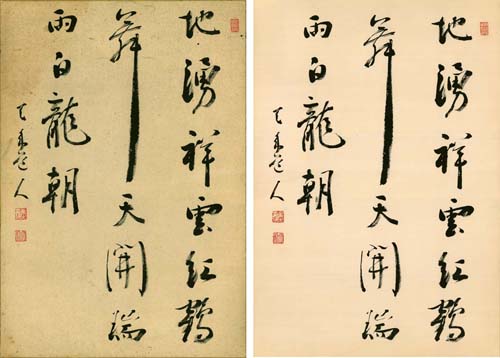 地湧祥雲紅鶴
舞天開瑞
雨白龍朝
道人
地湧祥雲紅鶴
舞天開瑞
雨白龍朝
道人